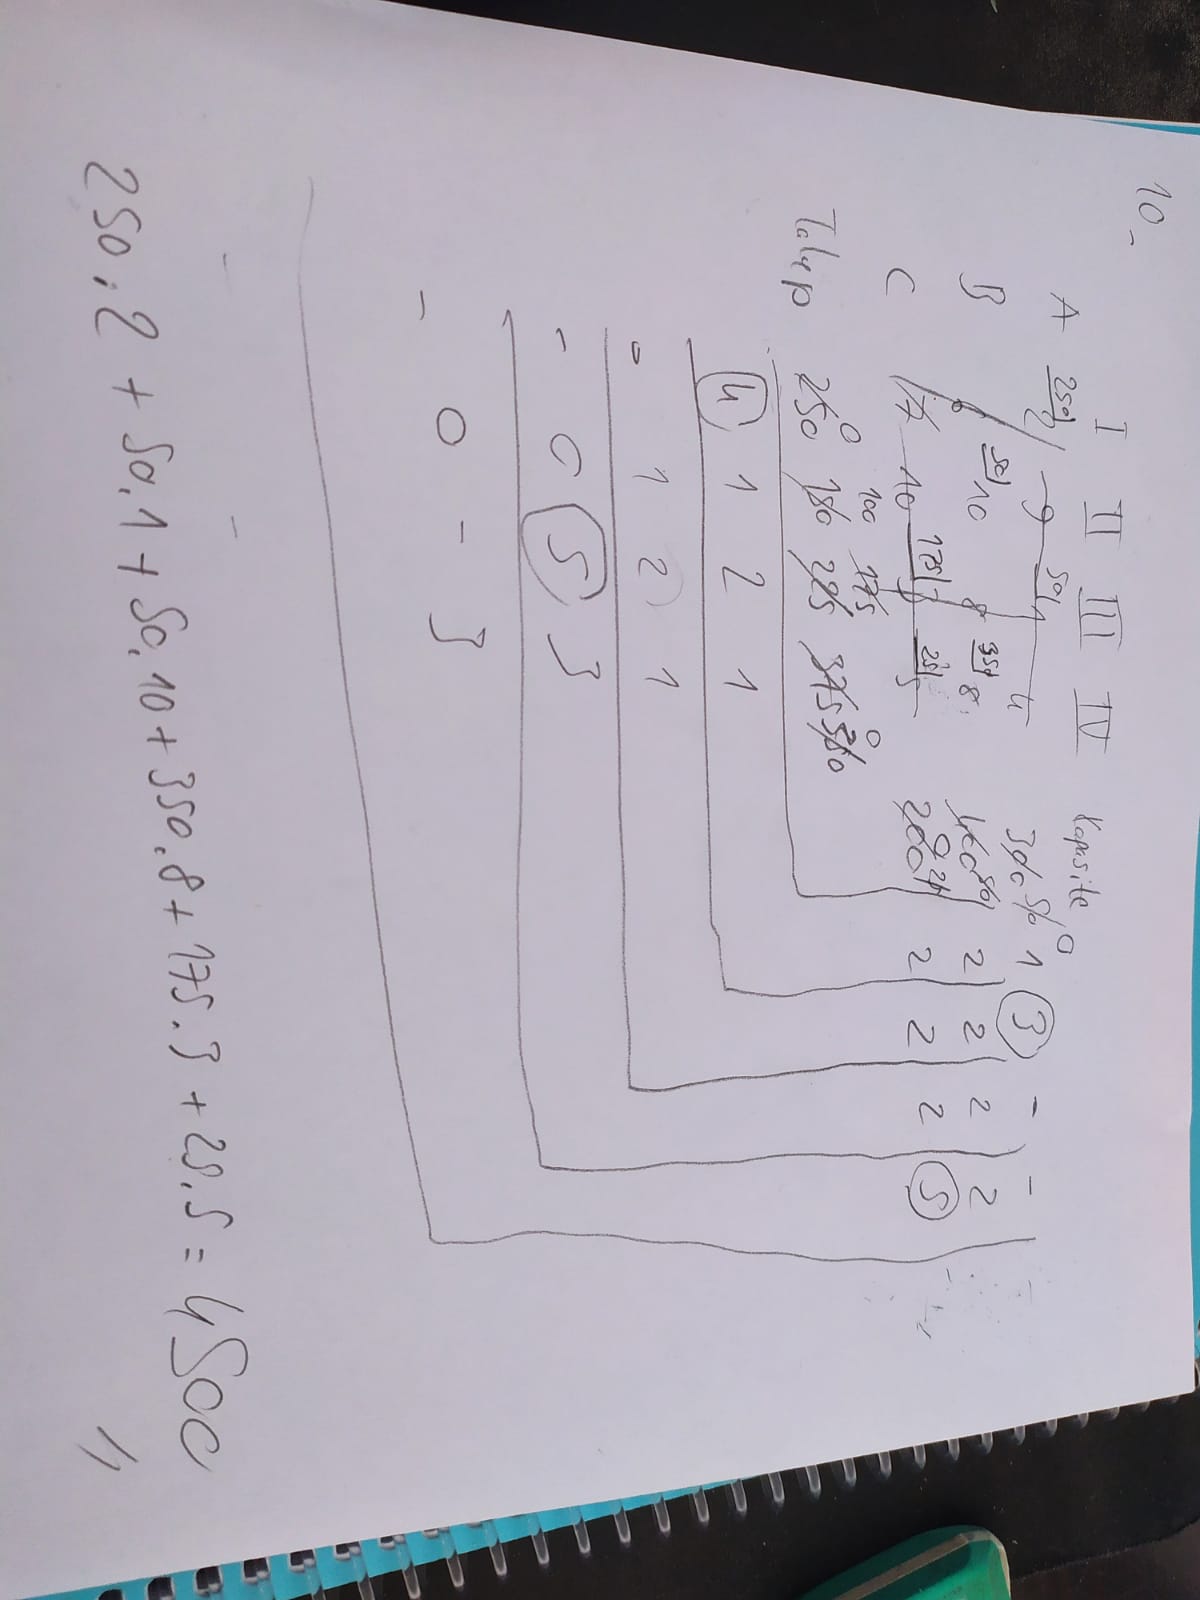 10_
I II III IV Kapasite
A 250 2 9 50 1 4 300 50 0 1 3 - -
B 6 50 10 8 350 8 400 50 2 2 2 2
C 7 10 175 3 25 5 200 0 25 2 2 2 5
100 175 0
0
Talep 250 150 225 375 350
4 1 2 1
- 1 2 1
- 0 5 3
- 0 - 3
- -
250.2 + 50.1 + 50.10 + 350.8 + 175.3 + 25.5 = 4500